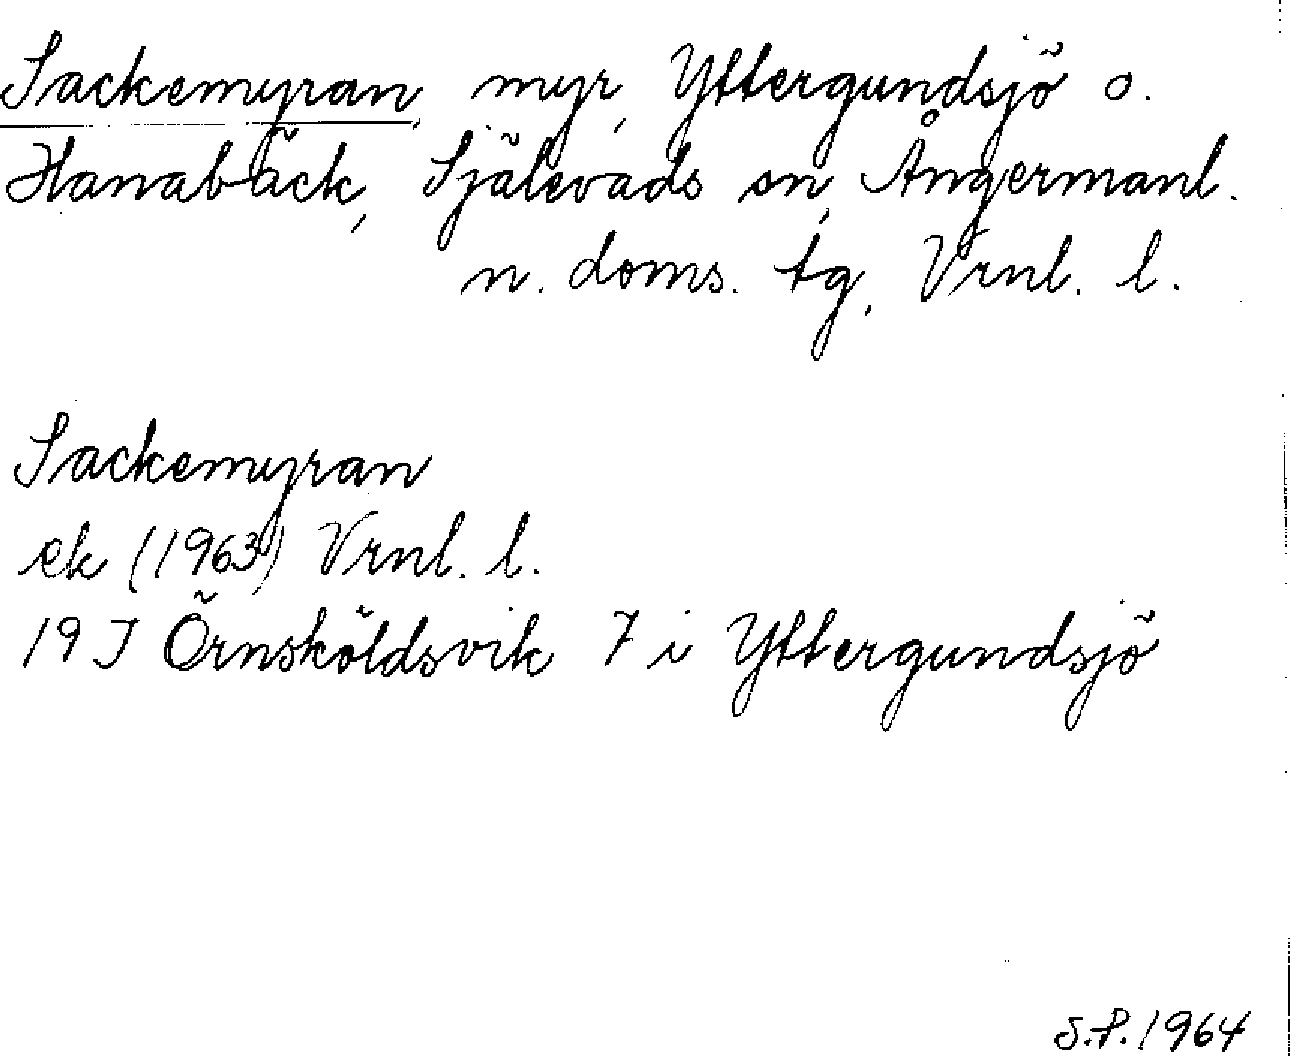 Sackemyran, myr, Yttergundsjö o.
Hanabäck, Själevads sn, Ångermanl.
n. doms. tg, Vrnl. l.
Sackemyran
ek (1963) Vrnl. l.
19 J Örnsköldsvik 7 i Yttergundsjö
S.P. 1964